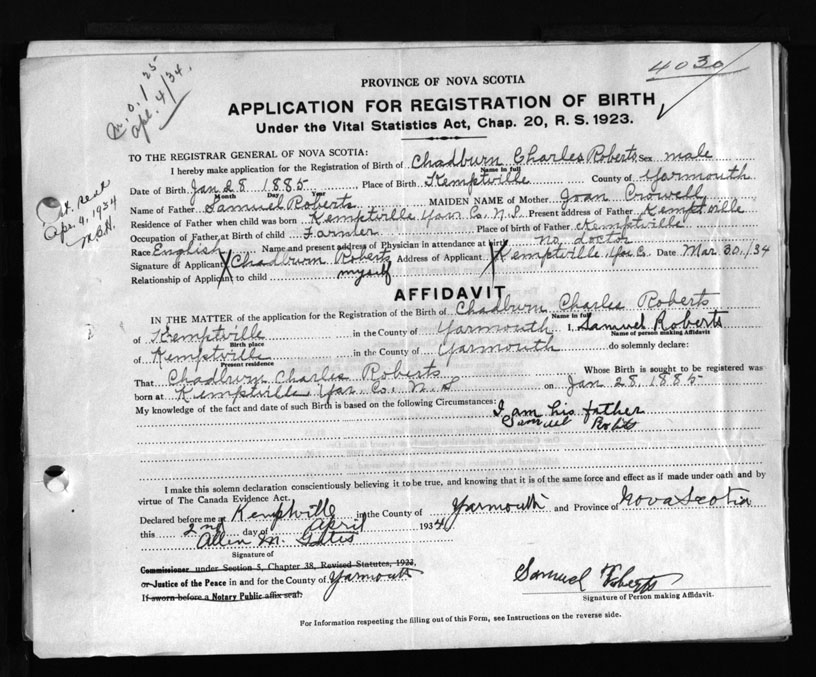 M.O. 1 25
Apl. 4/34.
4030
PROVINCE OF NOVA SCOTIA
APPLICATION FOR REGISTRATION OF BIRTH
Under the Vital Statistics Act, Chap. 20, R. S. 1923.
TO THE REGISTRAR GENERAL OF NOVA SCOTIA:
I hereby make application for the Registration of Birth of Chadburn Charles Roberts Sex male
Name in full
Date of Birth Jan 28 1885 Place of Birth Kemptville County of Yarmouth
Month Day Year
Apr. 9, 1934
Name of Father Samuel Roberts MAIDEN NAME of Mother Joan Crowell
Residence of Father when child was born Kemptville Yar Co. N.S. Present address of Father Kemptville
Occupation of Father at Birth of child Farmer Place of birth of Father Kemptville
Race English Name and present address of Physician in attendance at birth no doctor
Signature of Applicant X Chadburn Roberts Address of Applicant X Kemptville Yar Co. Date Mar 30/34
Relationship of Applicant to child myself
AFFIDAVIT
IN THE MATTER of the application for the Registration of the Birth of Chadburn Charles Roberts
Name in full
of Kemptville in the County of Yarmouth I, Samuel Roberts
Birth place Name of person making Affidavit
of Kemptville in the County of Yarmouth do solemnly declare:
Present residence
That Chadburn Charles Roberts Whose Birth is sought to be registered was
born at Kemptville Yar Co. N.S on Jan 28, 1885
My knowledge of the fact and date of such Birth is based on the following Circumstances: I am his father
Samuel
I make this solemn declaration conscientiously believing it to be true, and knowing that it is of the same force and effect as if made under oath and by
virtue of The Canada Evidence Act.
Declared before me at Kemptville in the County of Yarmouth and Province of Nova Scotia
this 2nd day of April 1934
Allen M. Gates
Signature of
Commissioner under Section 5, Chapter 38, Revised Statutes, 1923,
or Justice of the Peace in and for the County of Yarmouth
If sworn before a Notary Public affix seal.
Samuel Roberts
Signature of Person making Affidavit.
For Information respecting the filling out of this Form, see Instructions on the reverse side.